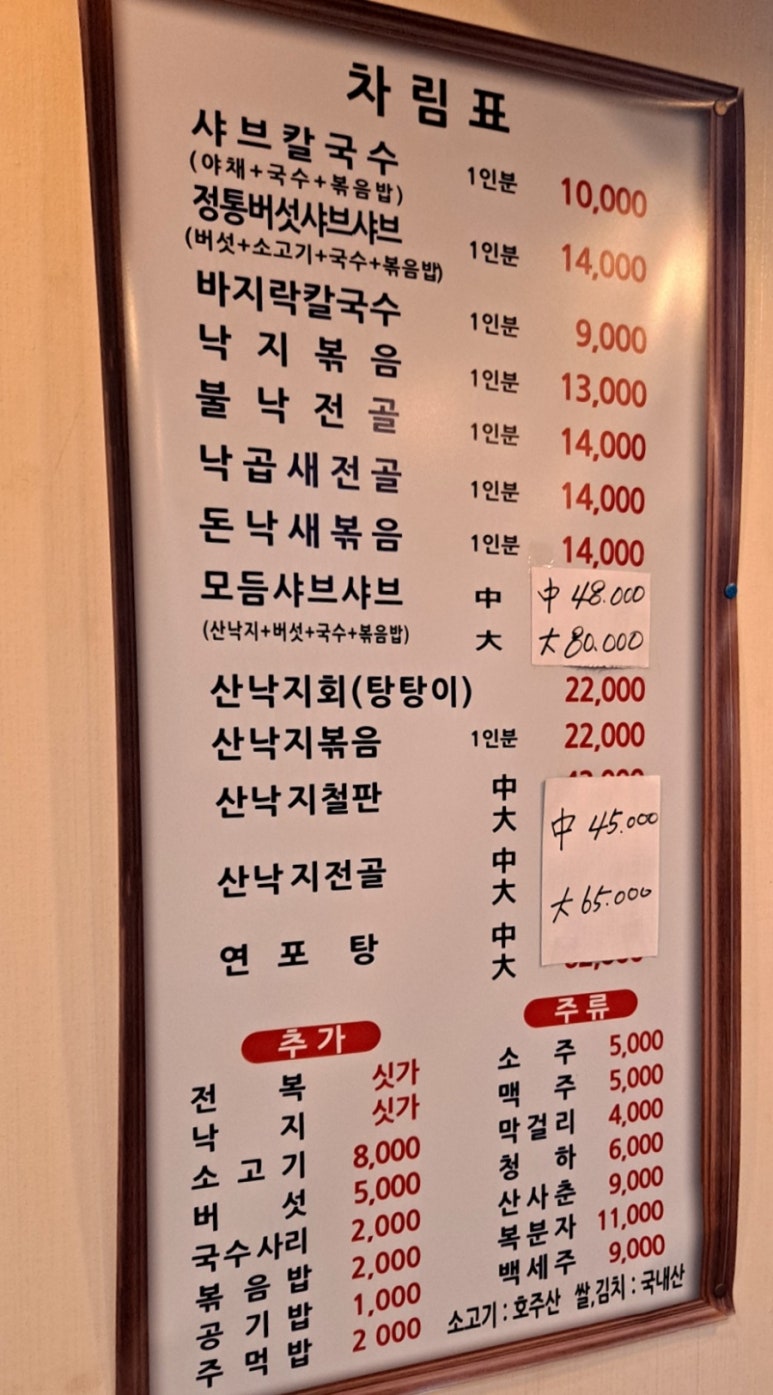 차림표
샤브칼국수 1인분 10,000
(야채+국수+볶음밥)
정통버섯샤브샤브 1인분 14,000
(버섯+소고기+국수+볶음밥)
바지락칼국수 1인분 9,000
낙지볶음 1인분 13,000
불낙전골 1인분 14,000
낙곱새전골 1인분 14,000
돈낙새볶음 1인분 14,000
모듬샤브샤브 中 中 48.000
(산낙지+버섯+국수+볶음밥) 大 大 80.000
산낙지회(탕탕이) 22,000
산낙지볶음 1인분 22,000
산낙지철판 中
大 中 45.000
산낙지전골 中
大 大 65.000
연포탕 中
大
추가
전복 싯가
낙지 싯가
소고기 8,000
버섯 5,000
국수사리 2,000
볶음밥 2,000
공기밥 1,000
주먹밥 2 000
주류
소주 5,000
맥주 5,000
막걸리 4,000
청하 6,000
산사춘 9,000
복분자 11,000
백세주 9,000
소고기 : 호주산 쌀,김치 : 국내산